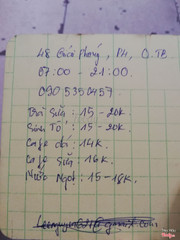 48 Quách Phong, P14, Q.TB
07:00 - 21:00.
090 539 0457
Bơ Sữa : 15 - 20k.
Sinh Tố : 15 - 20k.
Cafe đá : 14k.
Cafe Sữa : 16k.
Nước Ngọt : 15 - 18k.